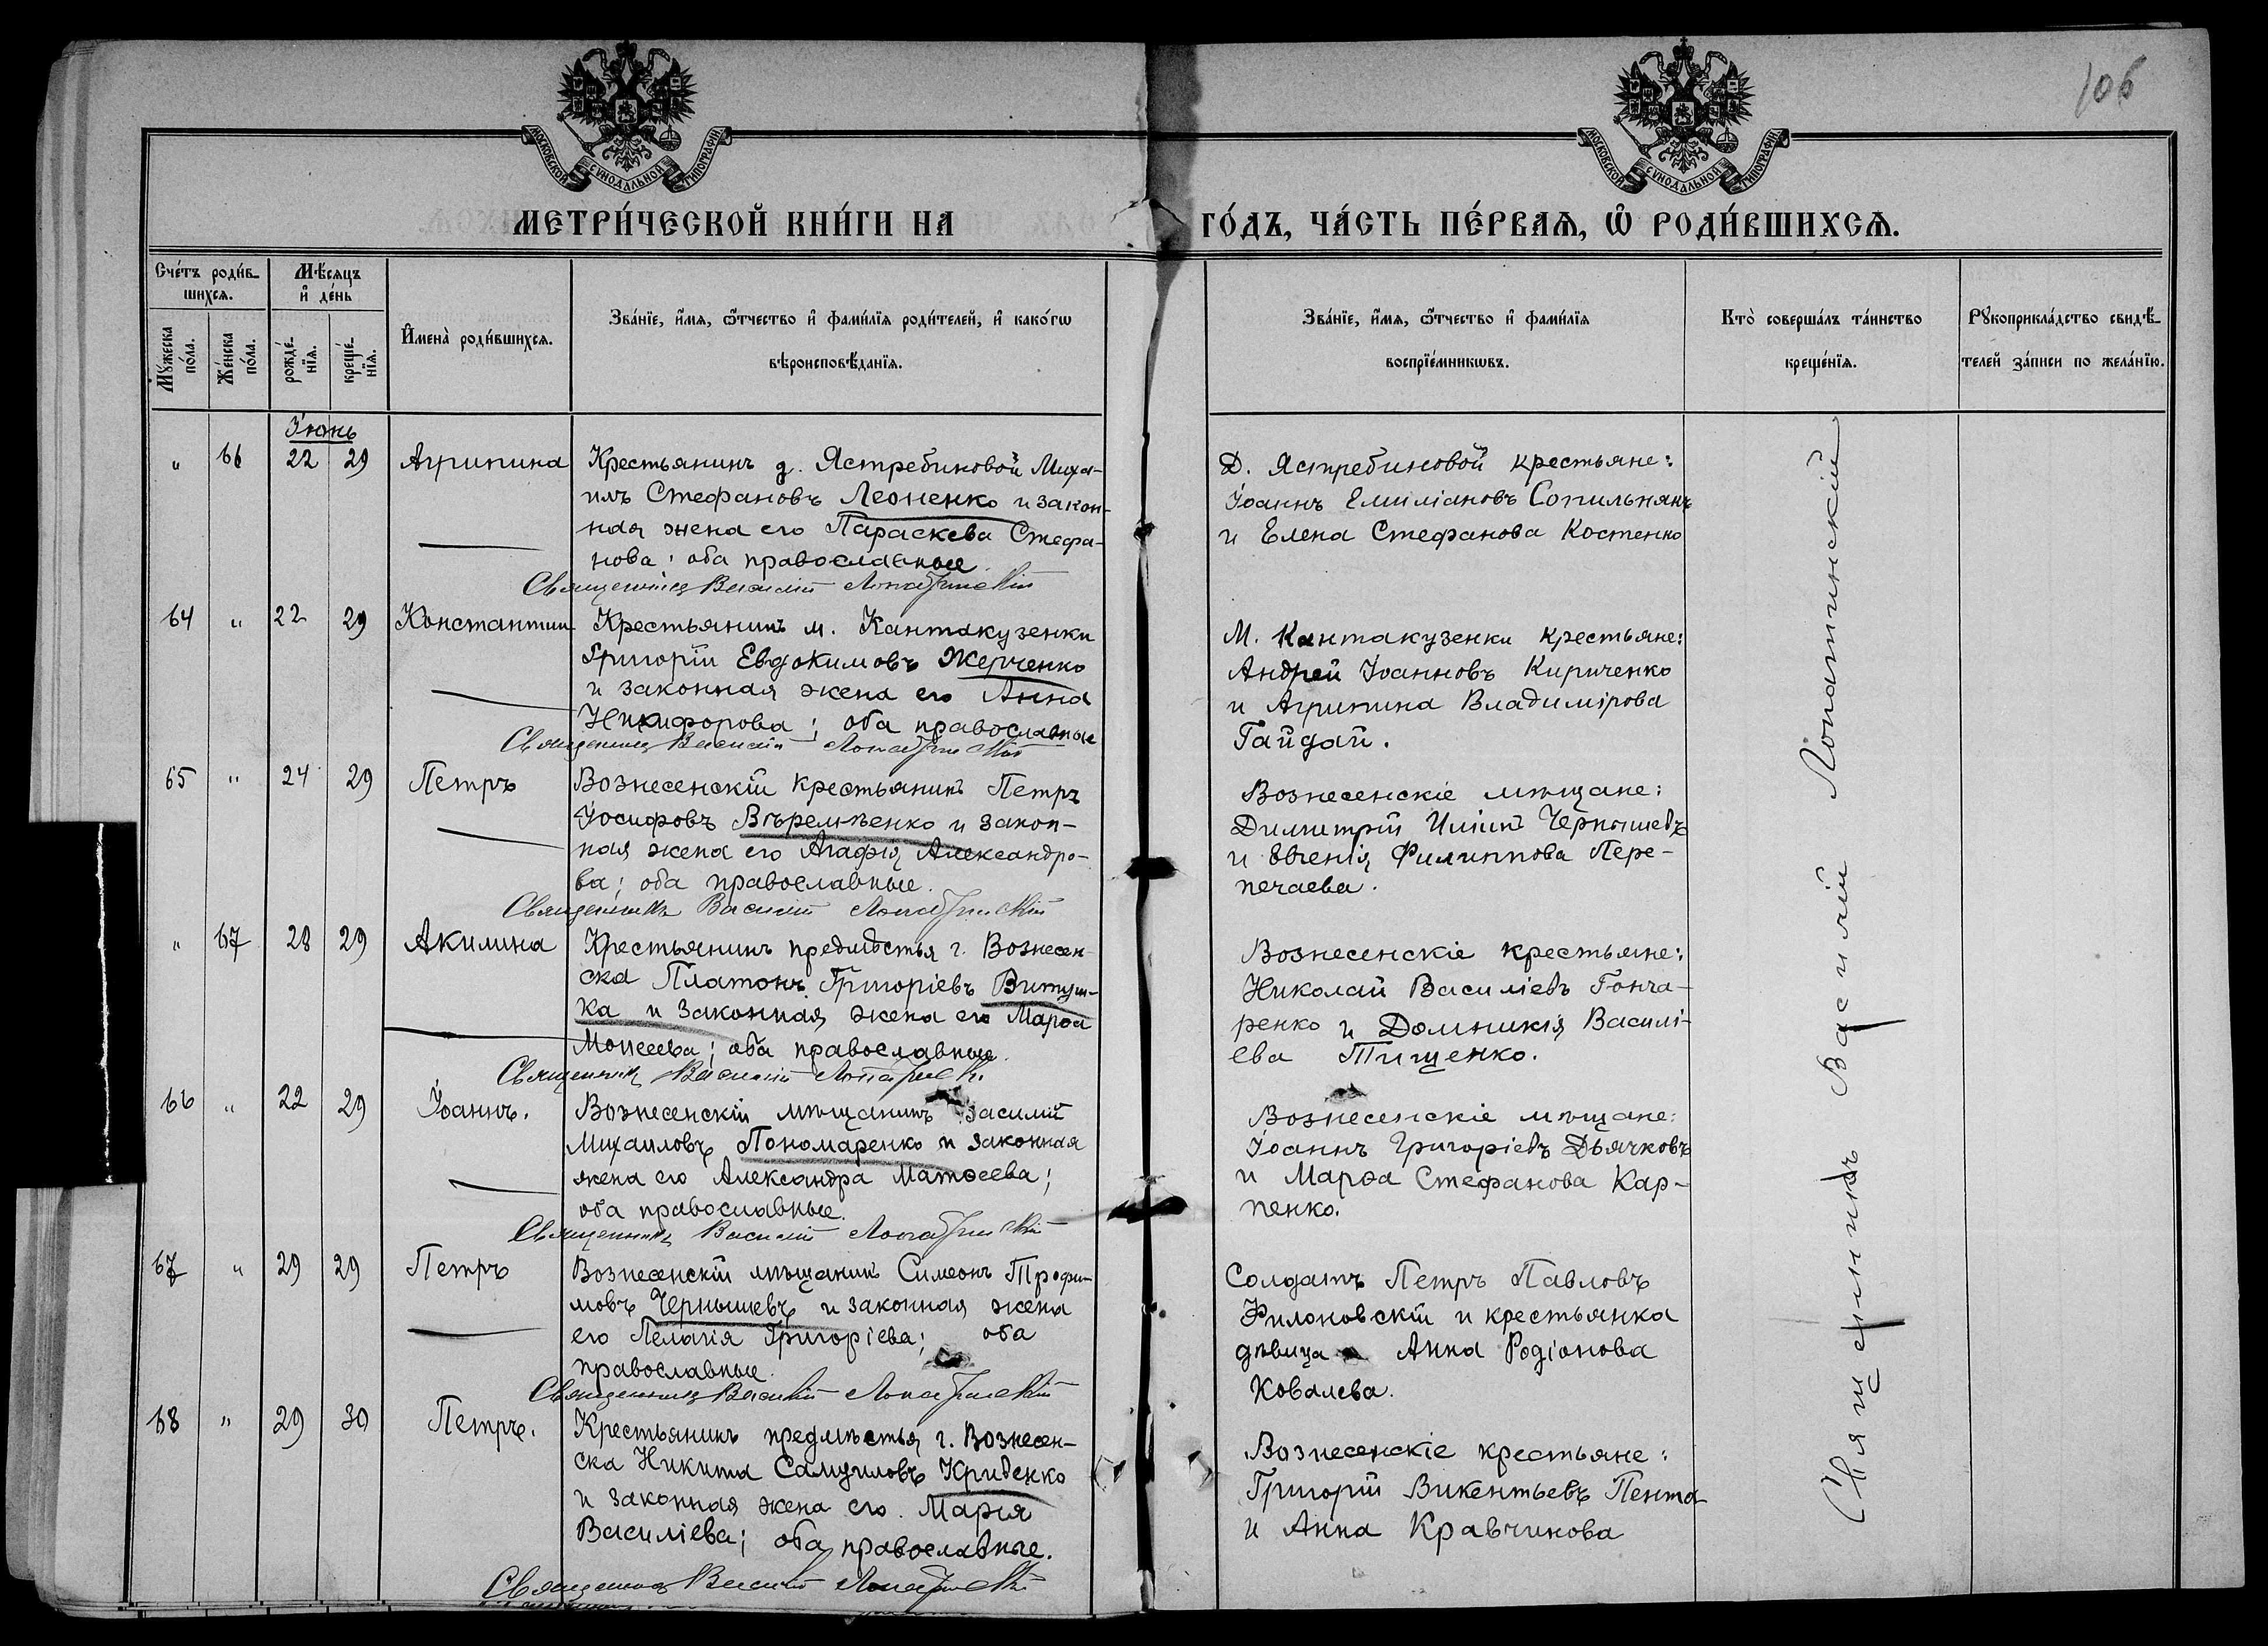 106
МОСКОВСКОЙ СУНОДАЛЬНОЙ ТИПОГРАФІИ
МОСКОВСКОЙ СУНОДАЛЬНОЙ ТИПОГРАФІИ
МЕТРИ́ЧЕСКОЙ КНИ́ГИ НА
ГО́ДЪ, ЧА́СТЬ ПЕ́РВАѦ, Ѽ РОДИ́ВШИХСѦ.
Сче́тъ роди́в-
шихсѧ.
Мѣ́сяцъ
и҆ де́нь
Мꙋ́жеска
по́ла.
Же́нска
по́ла.
рожде́-
нїѧ.
креще́-
нїѧ.
И҆мена̀ роди́вшихсѧ.
Зва́нїе, и҆́мѧ, ѻ҆́тчество и҆ фами́лїѧ роди́телей, и҆ како́гѡ
вѣроисповѣ́данїѧ.
Зва́нїе, и҆́мѧ, ѻ҆́тчество и҆ фами́лїѧ
воспрїе́мникѡвъ.
Кто̀ соверша́лъ та́инство
креще́нїѧ.
Рꙋкоприкла́дство свидѣ́-
телей за́писи по жела́нїю.
Іюнь
" 66 22 29 Агрипина
Крестьянинъ д. Ястребиновой Миха-
илъ Стефановъ Леоненко и закон-
ная жена его Параскева Стефа-
нова; оба православные.
Священникъ Василій Лопатинскій
Д. Ястребиновой крестьяне:
Іоаннъ Емиліановъ Сопильнякъ
и Елена Стефанова Костенко
64 " 22 29 Константин
Крестьянинъ м. Кантакузенки
Григорій Евдокимовъ Жерченко
и законная жена его Анна
Никифорова; оба православные
Священникъ Василій Лопатинскій
М. Кантакузенки крестьяне:
Андрей Іоанновъ Кириченко
и Агрипина Владимірова
Гайдай.
65 " 24 29 Петръ
Вознесенскій крестьянинъ Петръ
Іосифовъ Въремѣенко и закон-
ная жена его Агафія Александро-
ва; оба православные.
Священникъ Василій Лопатинскій
Вознесенскіе мѣщане:
Димитрій Иліинъ Чернышевъ
и Евгенія Филиппова Пере-
печаева.
" 67 28 29 Акилина
Крестьянинъ предмѣстья г. Вознесен-
ска Платонъ Григоріевъ Витуш-
ка и законная жена его Марѳа
Моисеева; оба православные.
Священникъ Василій Лопатинскій
Вознесенскіе крестьяне:
Николай Василіевъ Гонча-
ренко и Домникія Василі-
ева Тищенко.
66 " 22 29 Іоаннъ.
Вознесенскій мѣщанинъ Василій
Михаиловъ Пономаренко и законная
жена его Александра Матѳеева;
оба православные.
Священникъ Василій Лопатинскій
Вознесенскіе мѣщане:
Іоаннъ Григоріевъ Дьячковъ
и Марѳа Стефанова Кар-
пенко.
67 " 29 29 Петръ
Вознесенскій мѣщанинъ Симеонъ Трофи-
мовъ Чернышевъ и законная жена
его Пелагія Григоріева; оба
православные.
Священникъ Василій Лопатинскій
Солдатъ Петръ Павловъ
Филоновскій и крестьянка
дѣвица Анна Родіонова
Ковалева.
68 " 29 30 Петръ.
Крестьянинъ предмѣстья г. Вознесен-
ска Никита Самуиловъ Кривенко
и законная жена его Марія
Василіева; оба православные.
Священникъ Василій Лопатинскій
Вознесенскіе крестьяне:
Григорій Викентьевъ Пента
и Анна Кравчинова
Священникъ Василій Лопатинскій